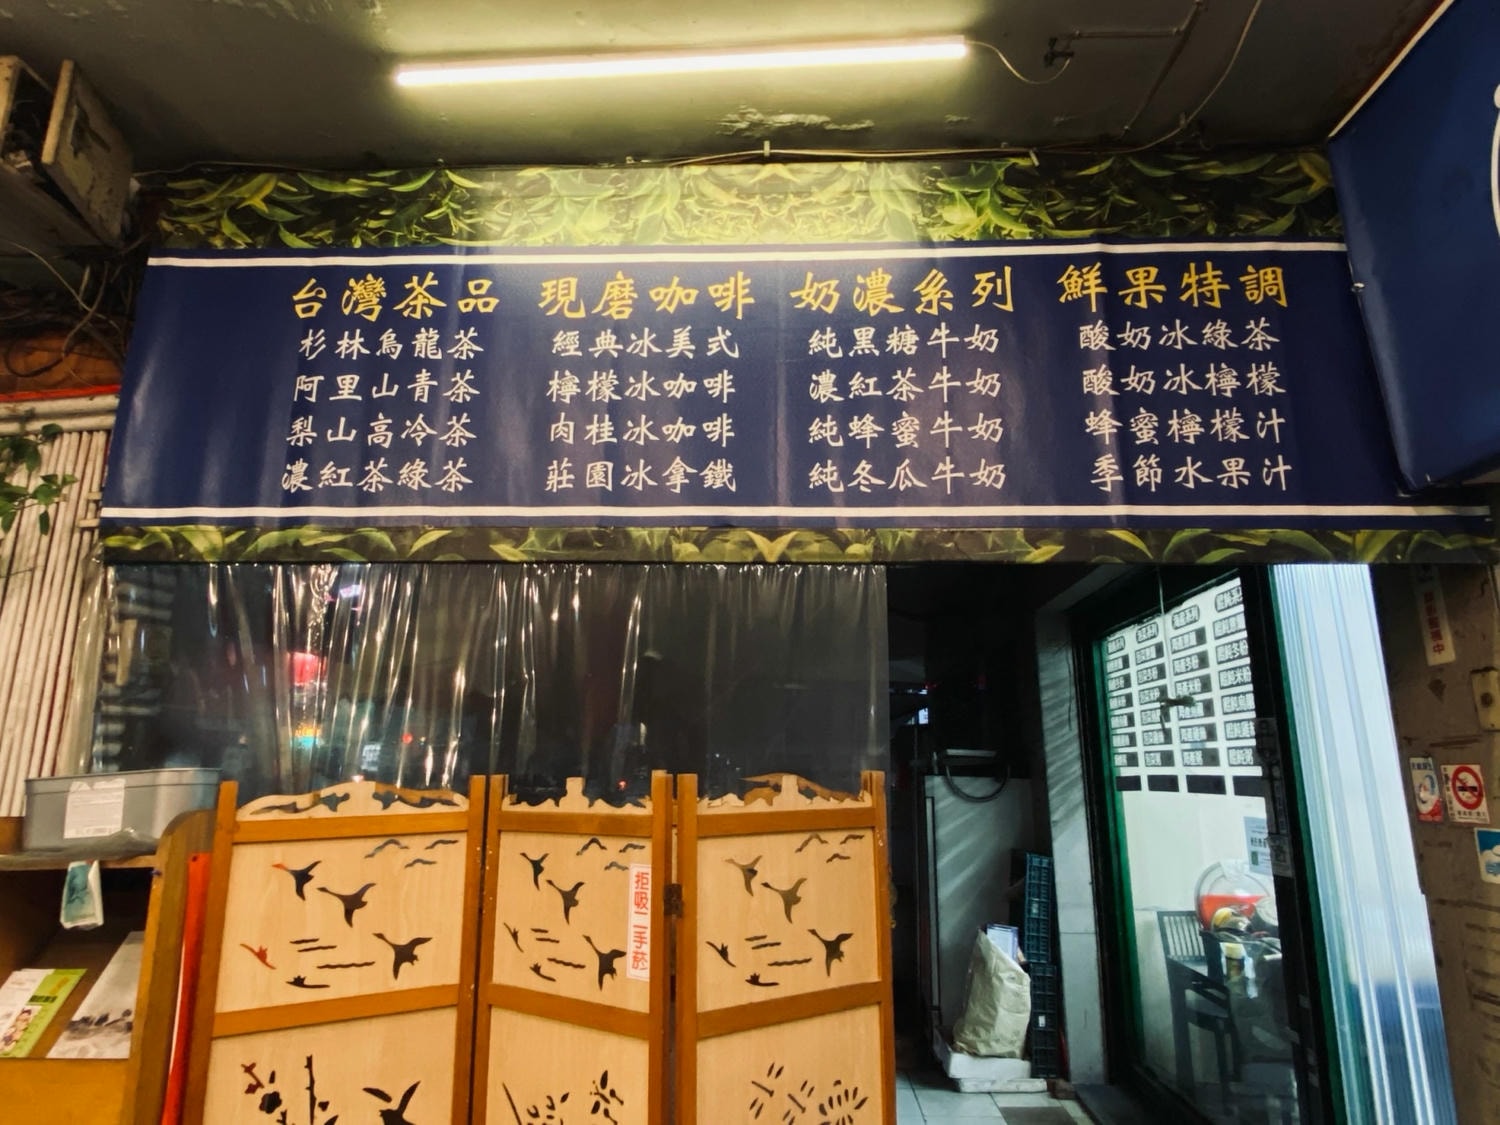 台灣茶品 現磨咖啡 奶濃系列 鮮果特調
杉林烏龍茶 經典冰美式 純黑糖牛奶 酸奶冰綠茶
阿里山青茶 檸檬冰咖啡 濃紅茶牛奶 酸奶冰檸檬
梨山高冷茶 肉桂冰咖啡 純蜂蜜牛奶 蜂蜜檸檬汁
濃紅茶綠茶 莊園冰拿鐵 純冬瓜牛奶 季節水果汁
拒吸二手菸